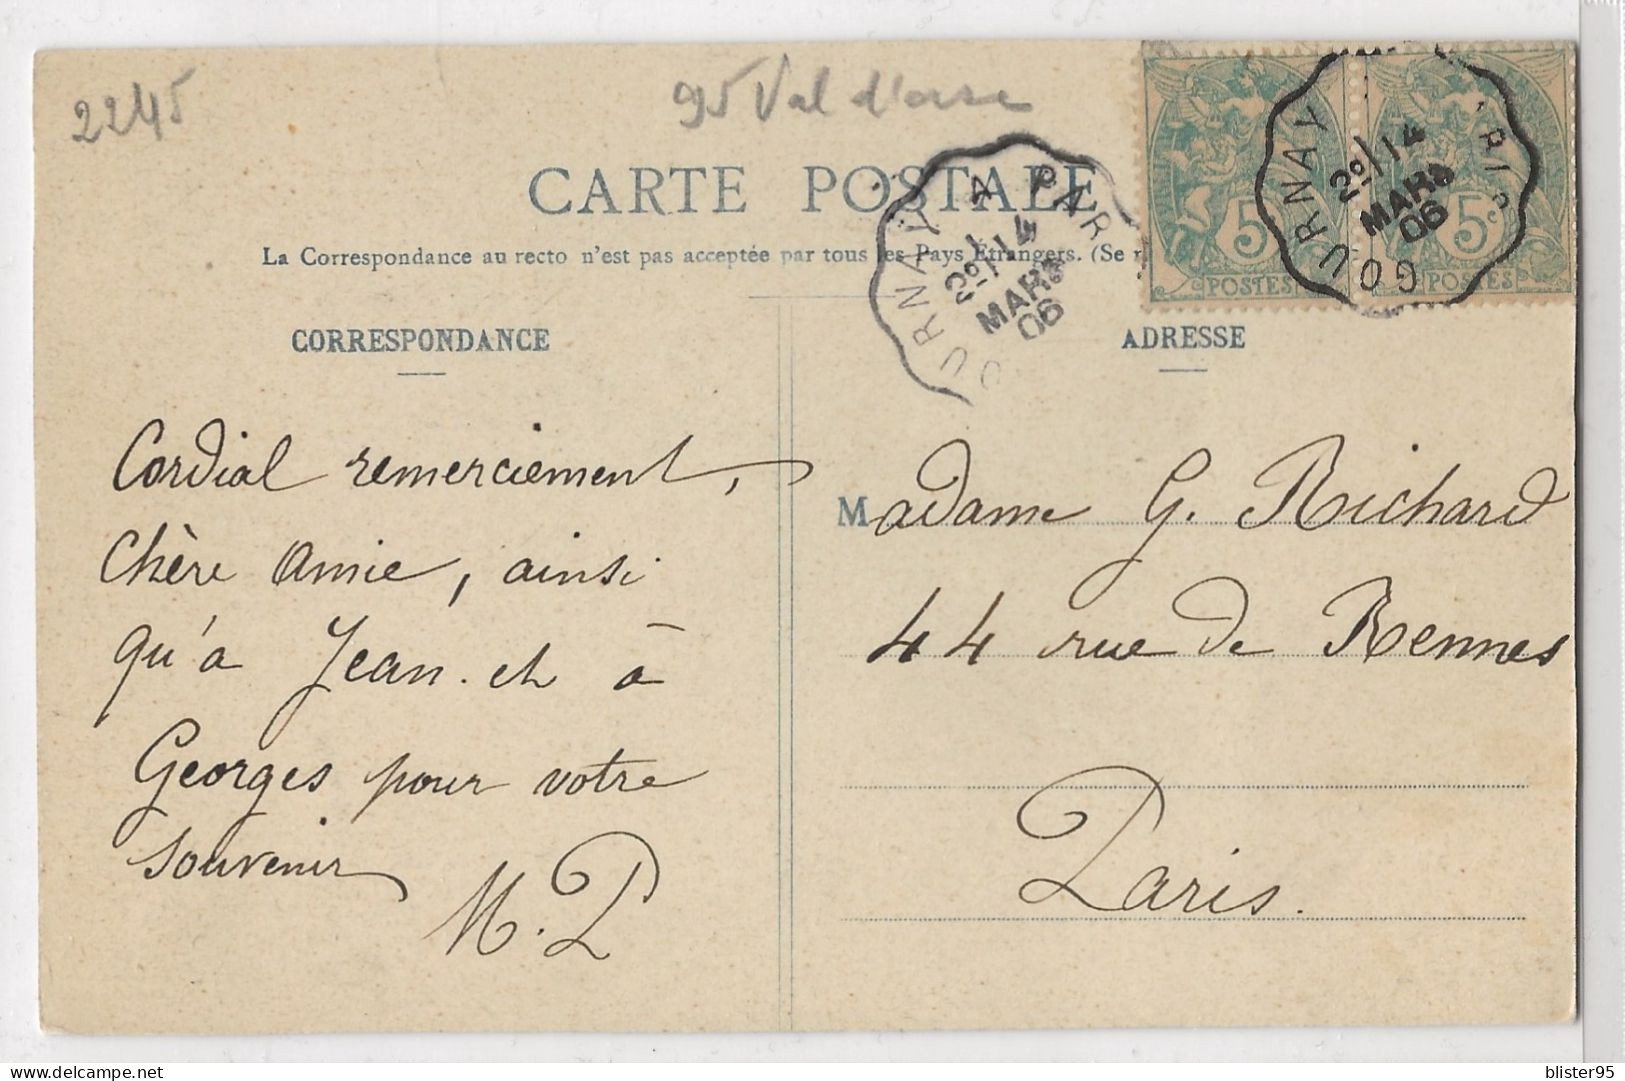 2245
95 Val d'oise
CARTE POSTALE
La Correspondance au recto n'est pas acceptée par tous les Pays Étrangers. (Se
GOURNAY A PARIS
2º/14
MARS
06
5c
POSTES
5c
POSTES
GOURNAY
2º/14
MARS
06
CORRESPONDANCE
ADRESSE
Cordial remerciement,
Chère Amie, ainsi
qu'à Jean. et à
Georges pour votre
souvenir
M. P
Madame G. Richard
44 rue de Rennes
Paris.
blister95